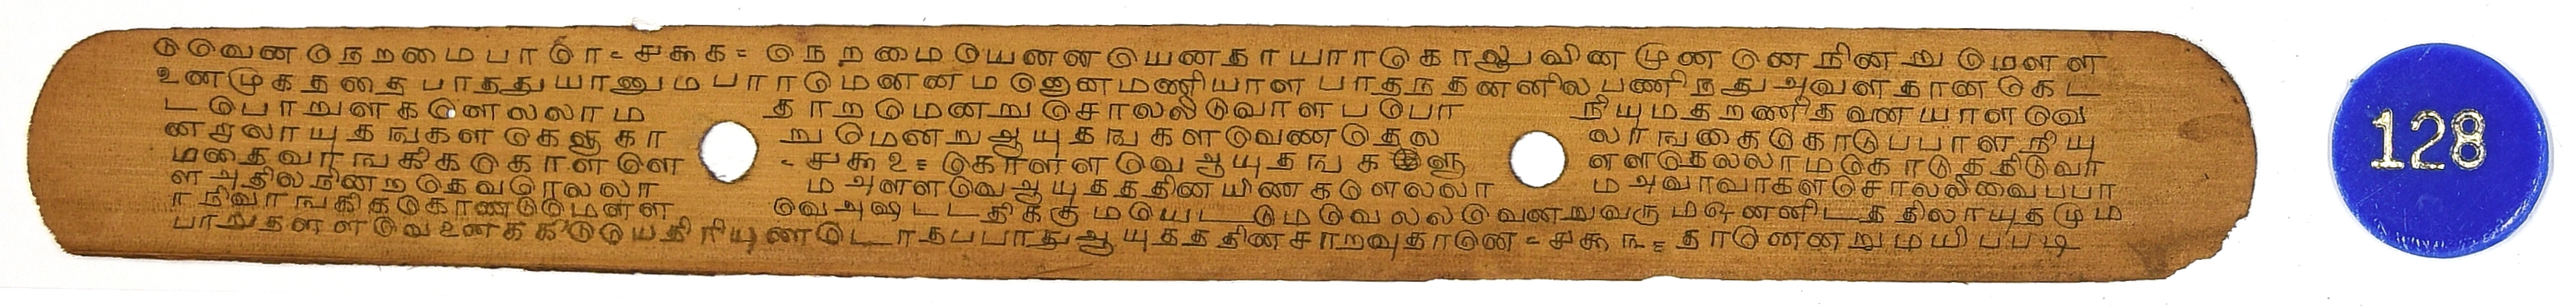 டுவேனநெறமைபாரோ - ௪௬௧ - நெறமையெனனயெனதாயாரகொலுவினமுனனெநினறுமெளள
உனமுகததைபாதது யானுமபாரமெனனமனெனமணியாளபாதநதனனிலபணிநது அவளதானகெ
டபொறுளகளெலலாம தாறமெனறுசொலலிடுவாளபபொ நியுமதறணிதவணயாளவெ
னறலாயுதஙகளகெளுகா றுமெனறு ஆயுதஙகளவெணதெல லாஙகைகொடுபபாளநியு
மதைவாஙகிககொளளெ - ௪௬௨ - கொளளவெ ஆயுதஙகளு ளளதெலலாமகொடுததிடுவா
ள அதிலநினறதெவரொலலா ம அளளவெ ஆயுதததினயிணகளெலலா ம அவாவாகளசொலலிவைபபா
ரநிவாஙகிதகொணடுமெளள வெ அஷடடதிககுமயெடடுமவெலலவெனறுவருமஞனனிடததிலாயுதமும
பாறுதளளவெ உனககிடுயெதிரியுணடொதபபாது ஆயுதததினசாறவுதானெ - ௪௬௩ - தானெனறுமயிபபடி
128